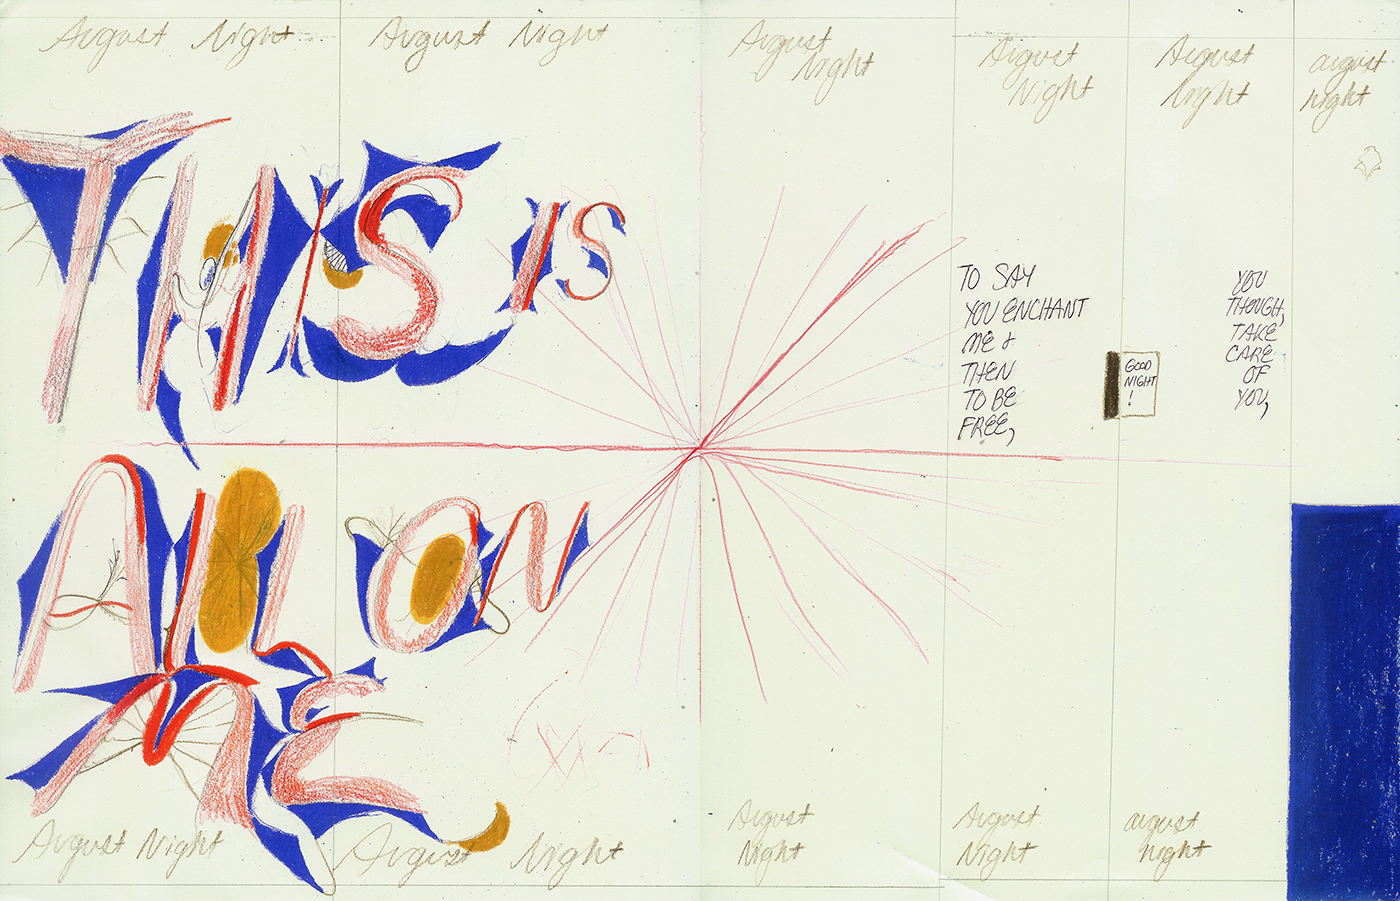 August Night
August Night
August
Night
August
Night
August
Night
august
night
THIS IS
ALL ON
ME
TO SAY
YOU ENCHANT
ME &
THEN
TO BE
FREE,
GOOD
NIGHT
!
YOU
THOUGH,
TAKE
CARE
OF
YOU,
August Night
August Night
August
Night
August
Night
august
night